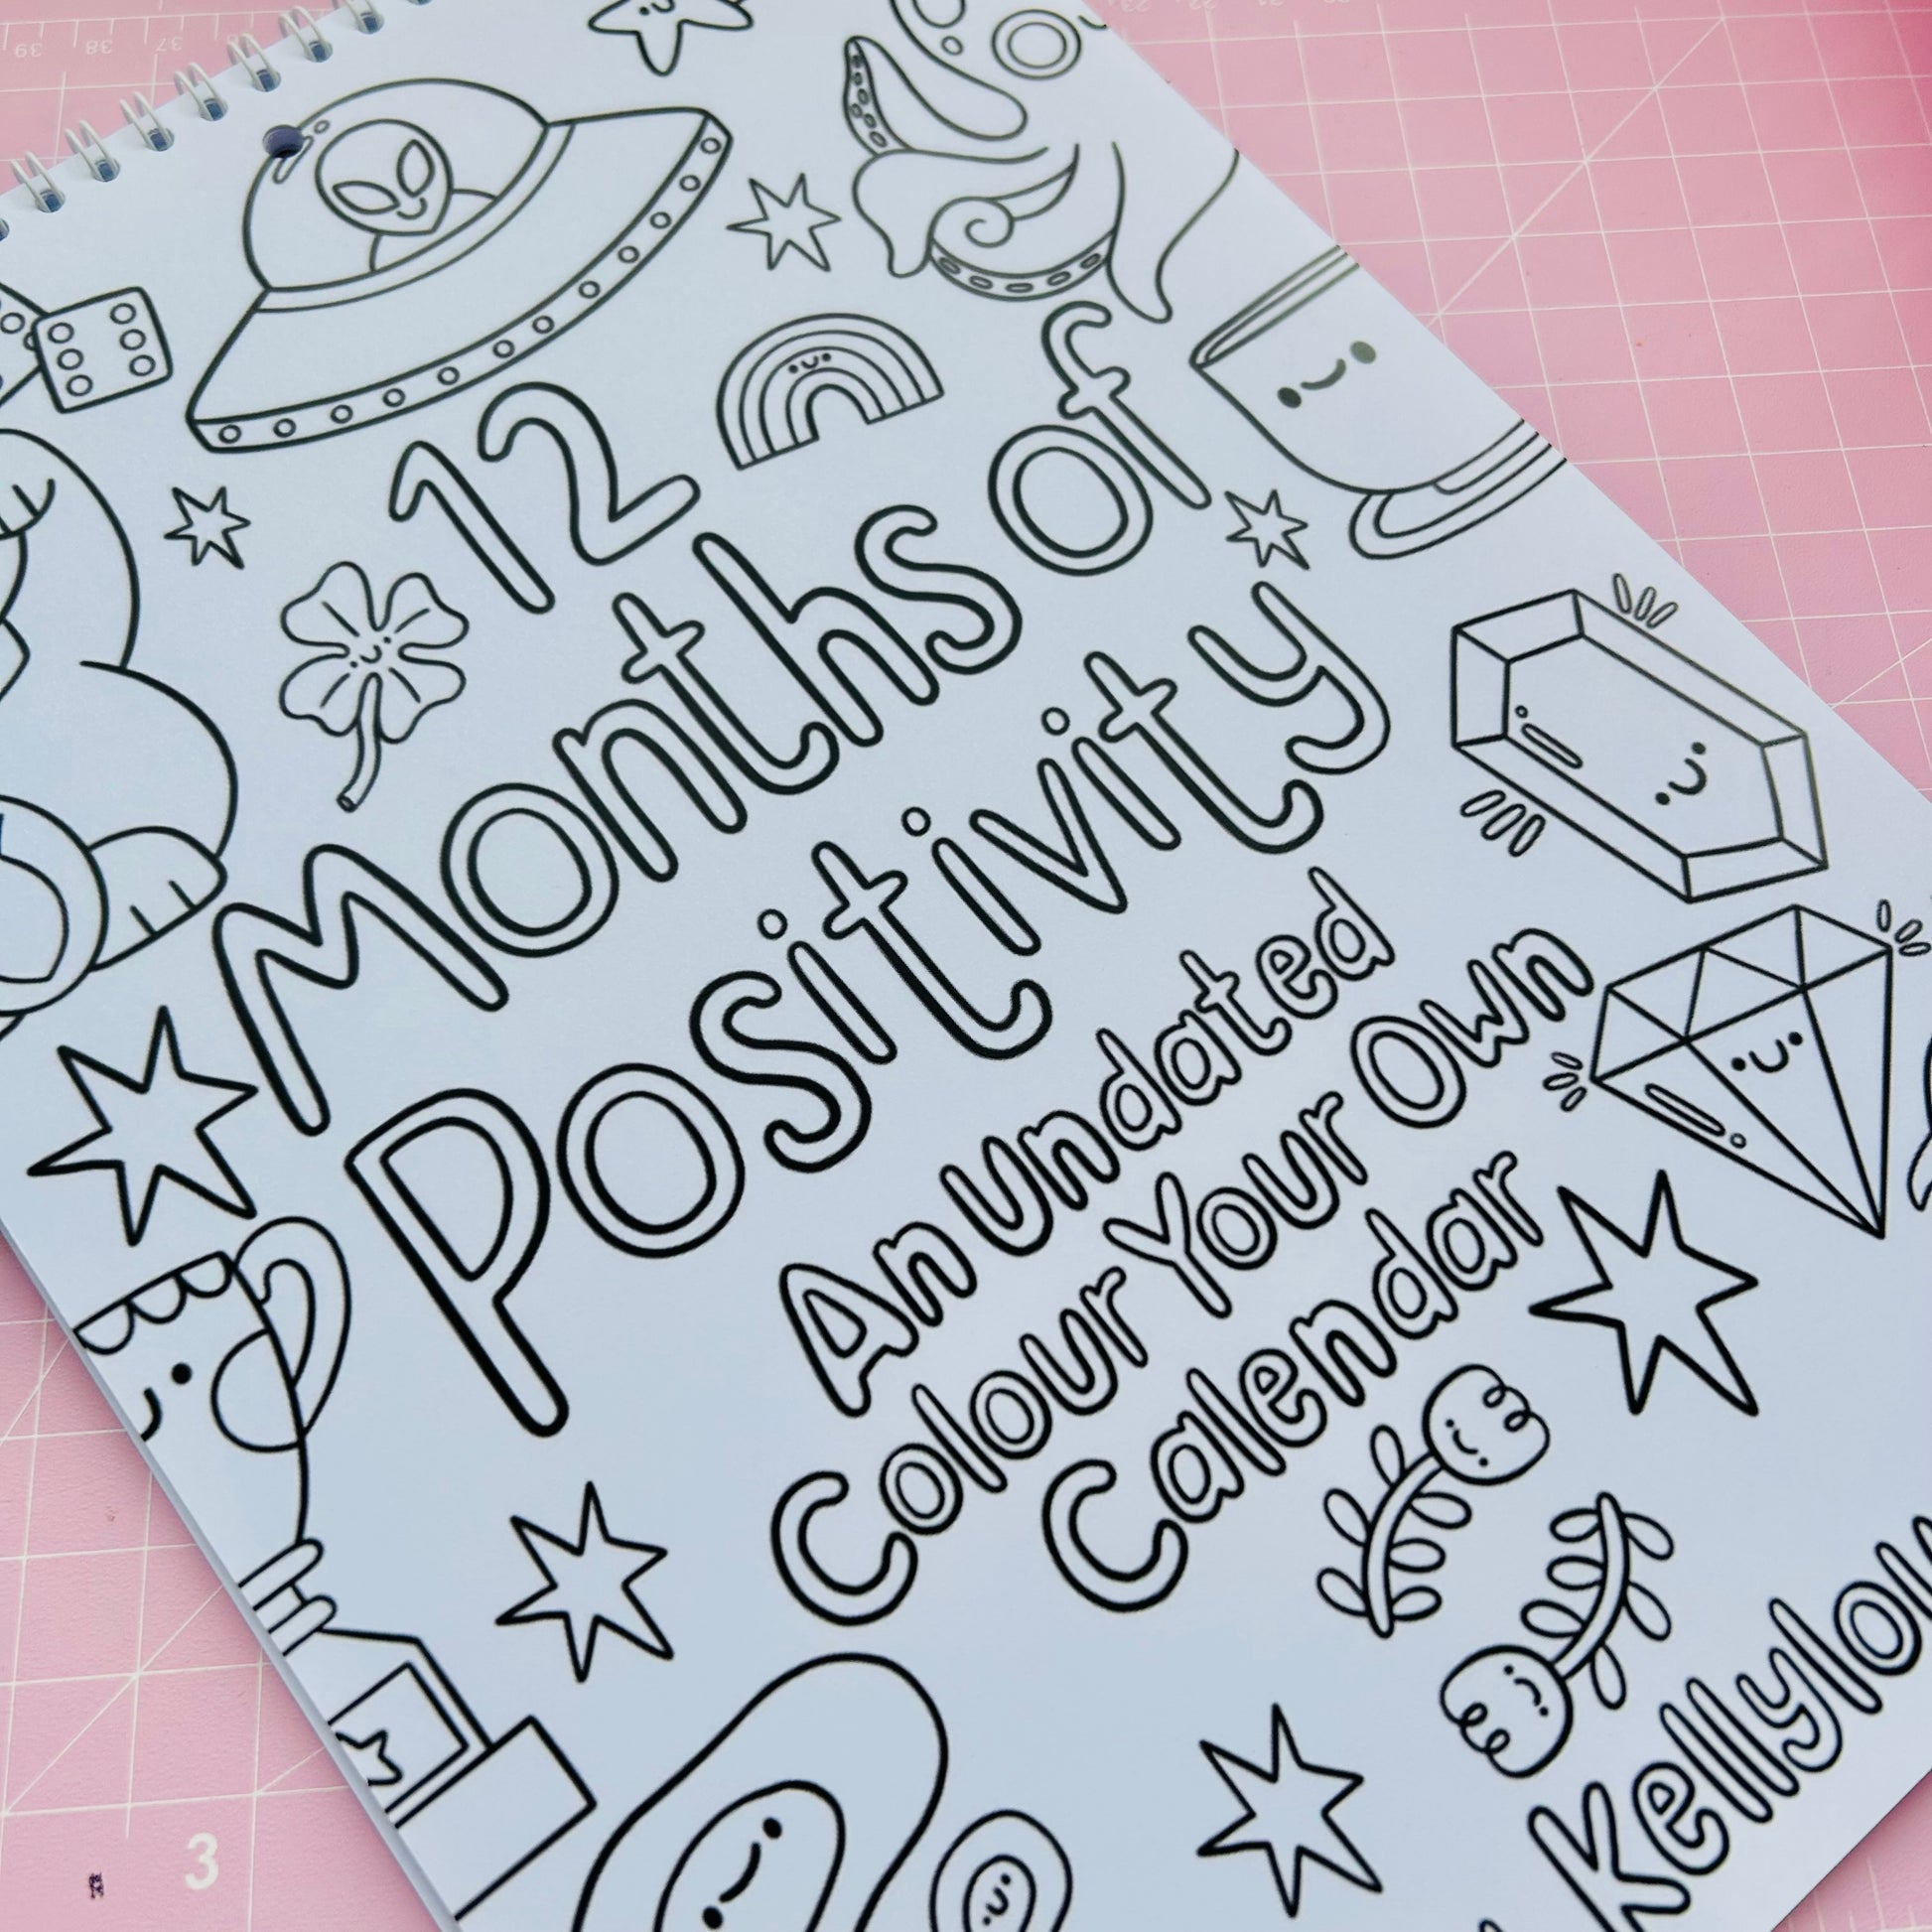 12
Months of
Positivity
An Undated
Colour Your Own
Calendar
3
39 38 37